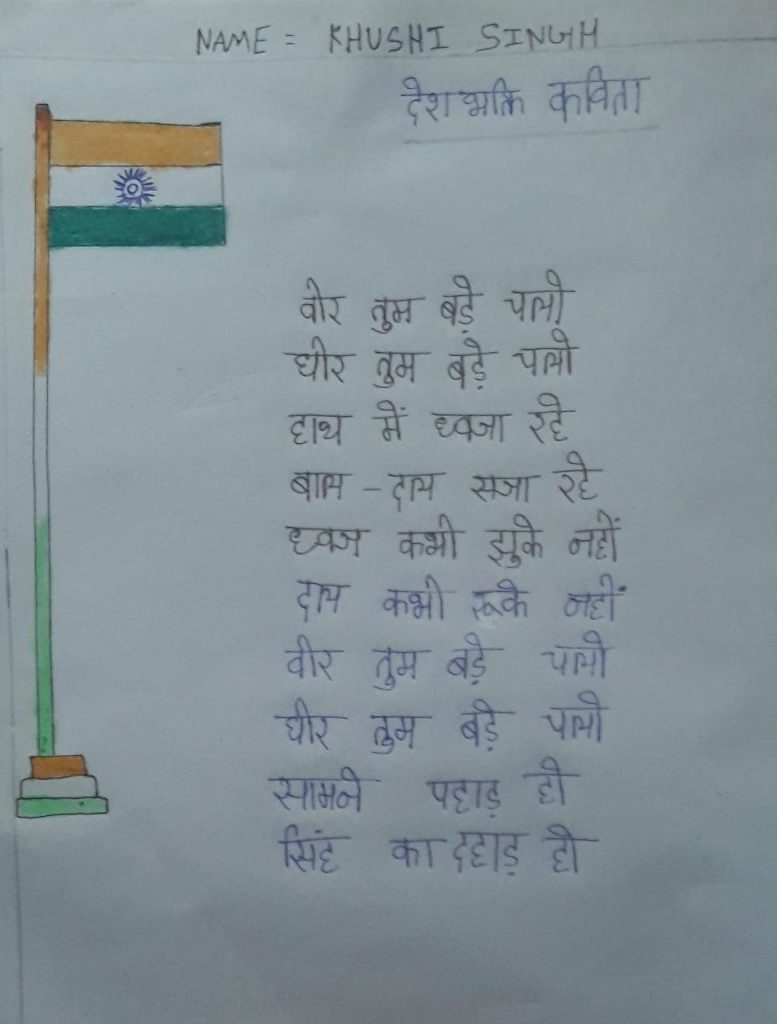 NAME = KHUSHI SINGH
देशभक्ति कविता
वीर तुम बड़े चलो
धीर तुम बड़े चलो
हाथ में ध्वजा रहे
बाल - दाल सजा रहे
ध्वज कभी झुके नहीं
दाल कभी रूके नहीं
वीर तुम बड़े चलो
धीर तुम बड़े चलो
सामने पहाड़ हो
सिंह का दहाड़ हो